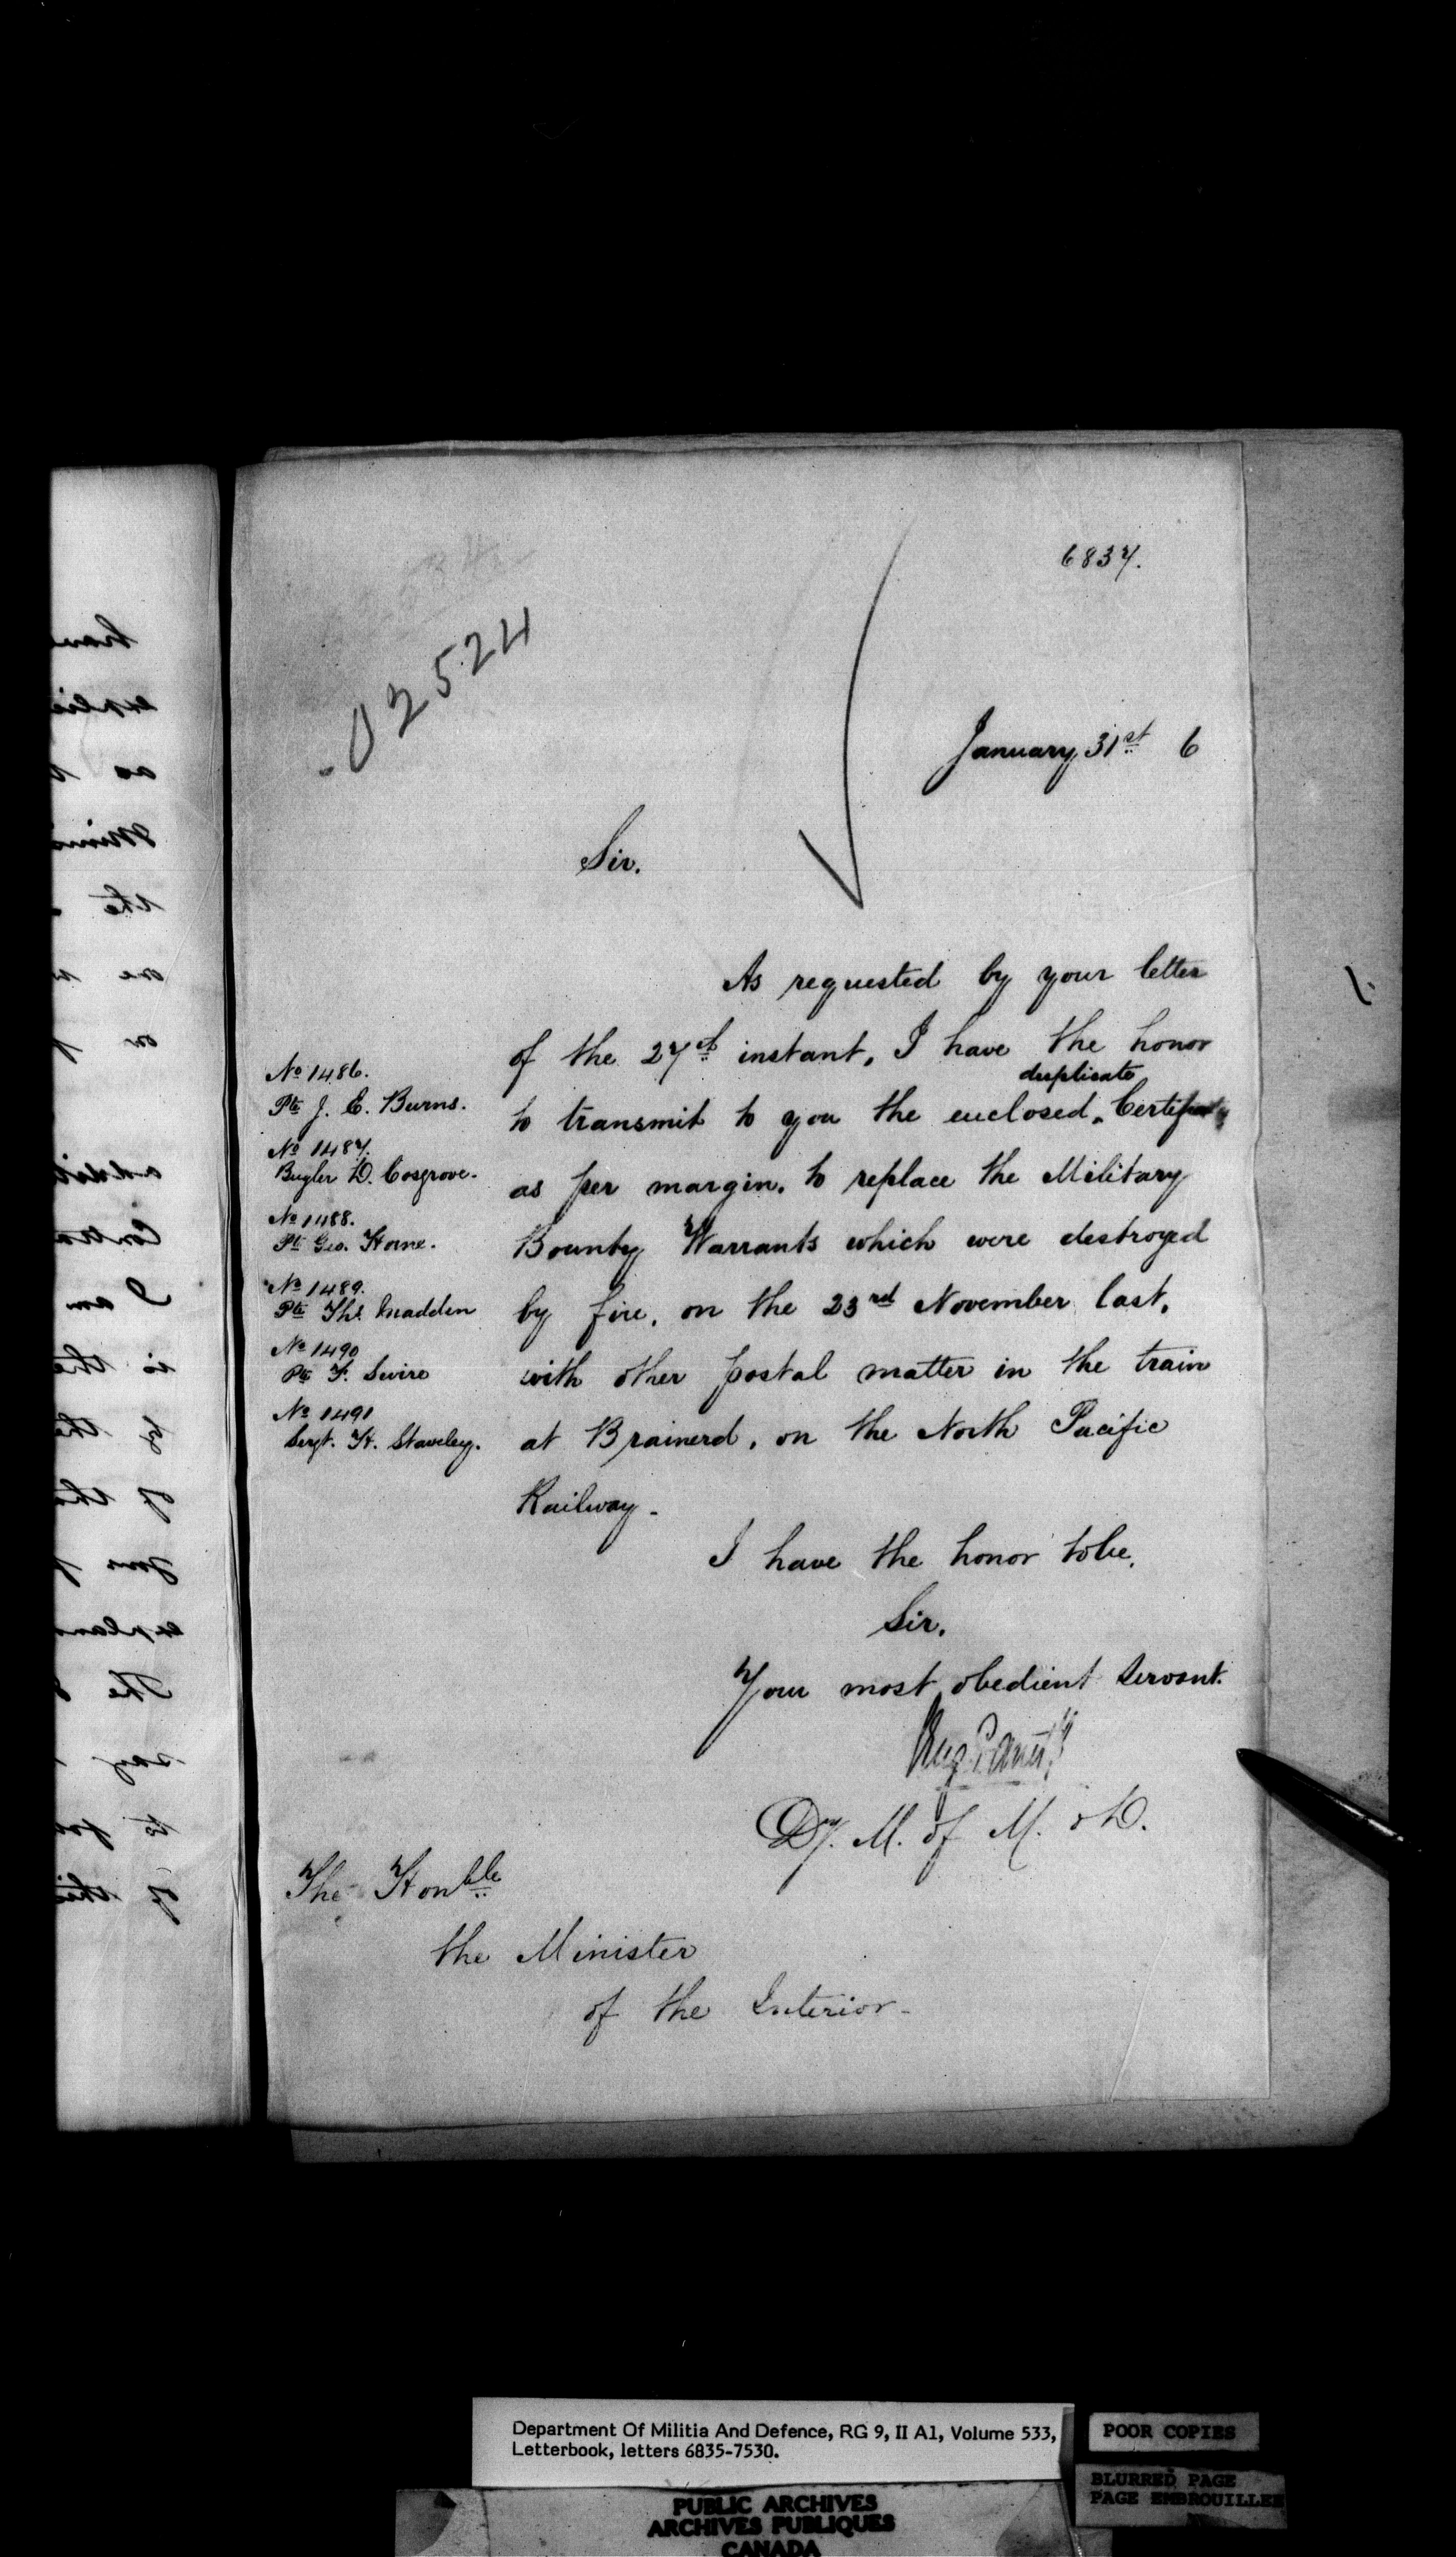 6837.
02524
January 31st 6
Sir.
As requested by your letter
of the 27th instant, I have the honor
duplicate
to transmit to you the enclosed, Certificates
as per margin, to replace the Military
Bounty Warrants which were destroyed
by fire, on the 23rd November last,
with other postal matter in the train
at Brainerd, on the North Pacific
Railway -
No 1486.
Pte J. E. Burns.
No 1487.
Bugler D. Cosgrove.
No 1488.
Pte Geo. Horne.
No 1489.
Pte Ths. Madden
No 1490
Pte F. Swire
No 1491
Sergt. H. Staveley.
I have the honor to be,
Sir,
Your most obedient Servant.
Dy. M. of M. & D.
The Honble
the Minister
of the Interior -
Department Of Militia And Defence, RG 9, II A1, Volume 533,
Letterbook, letters 6835-7530.
POOR COPIES
BLURRED PAGE
PAGE EMBROUILLEE
PUBLIC ARCHIVES
ARCHIVES PUBLIQUES
CANADA